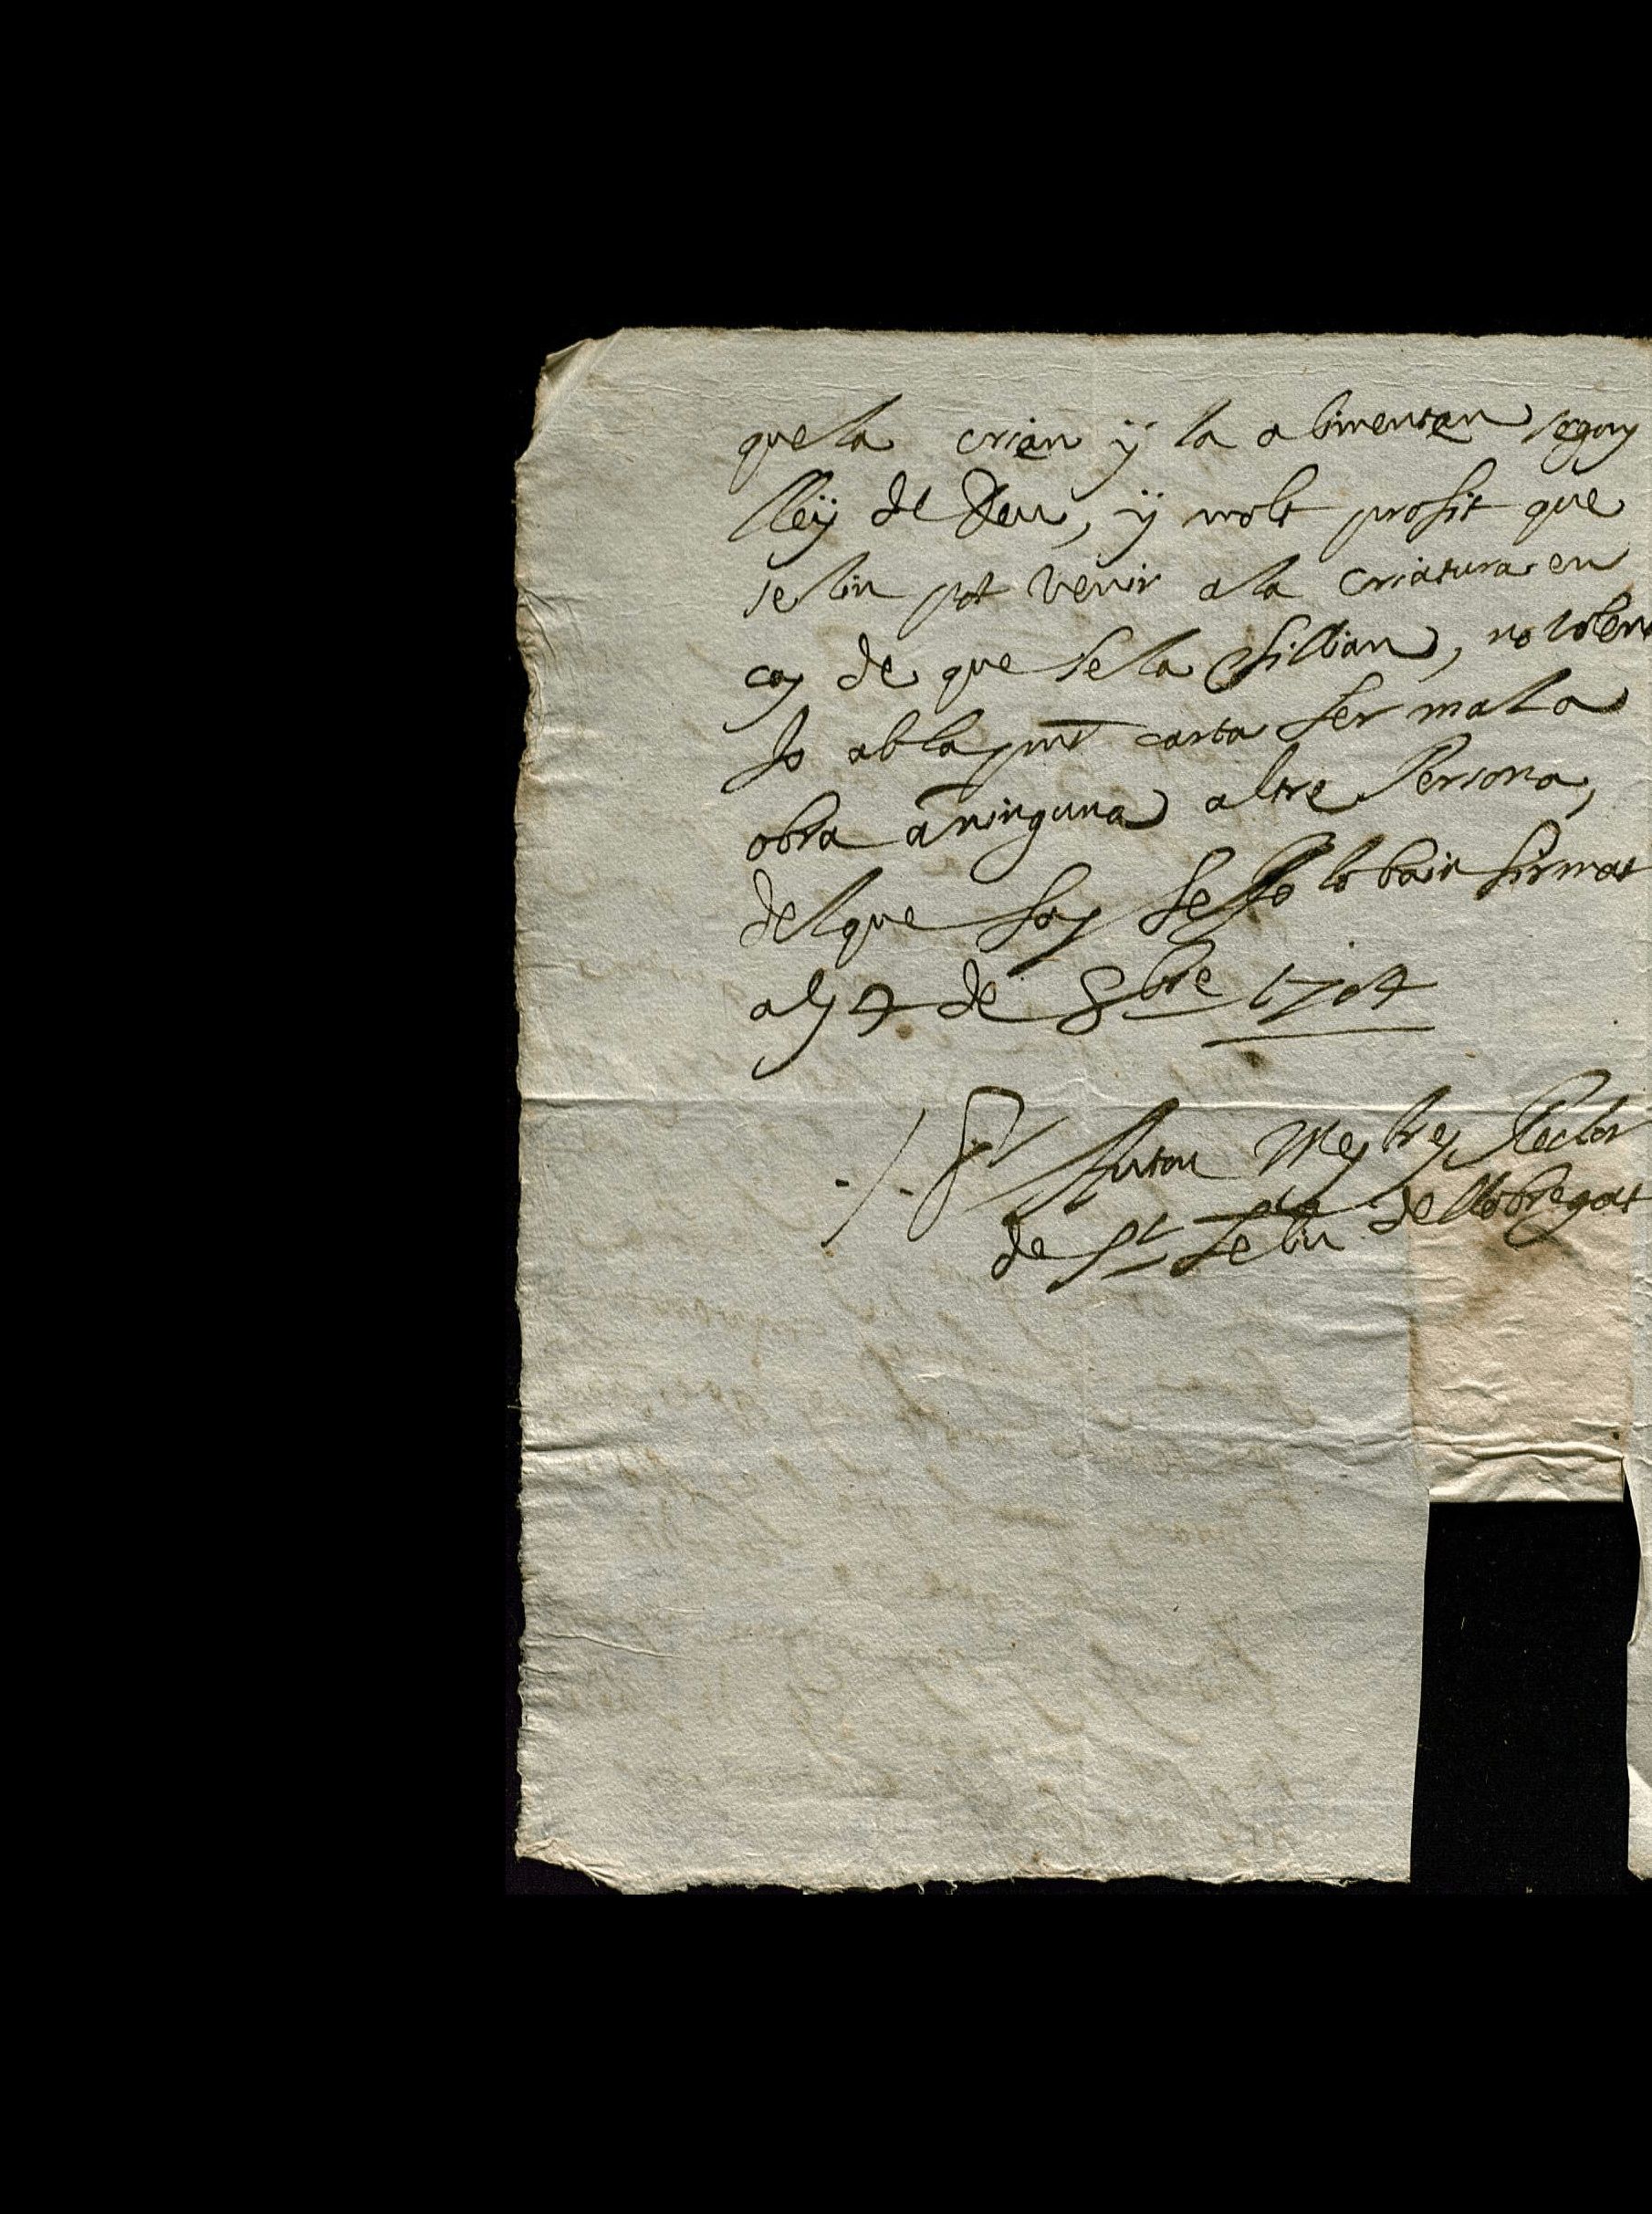 que la crian ÿ la alimentan segoy
lleÿ de Deu, ÿ molt profit que
se lin pot venir a la criatura en
cas de que se la fillian, no volent
Jo ab la pnt carta fer mala
obra a ninguna altre Persona,
del que fas fe Jo lo baix firmat
als 4 de 8bre 1704
Anton Mestres Rector
de St Feliu de Llobregat